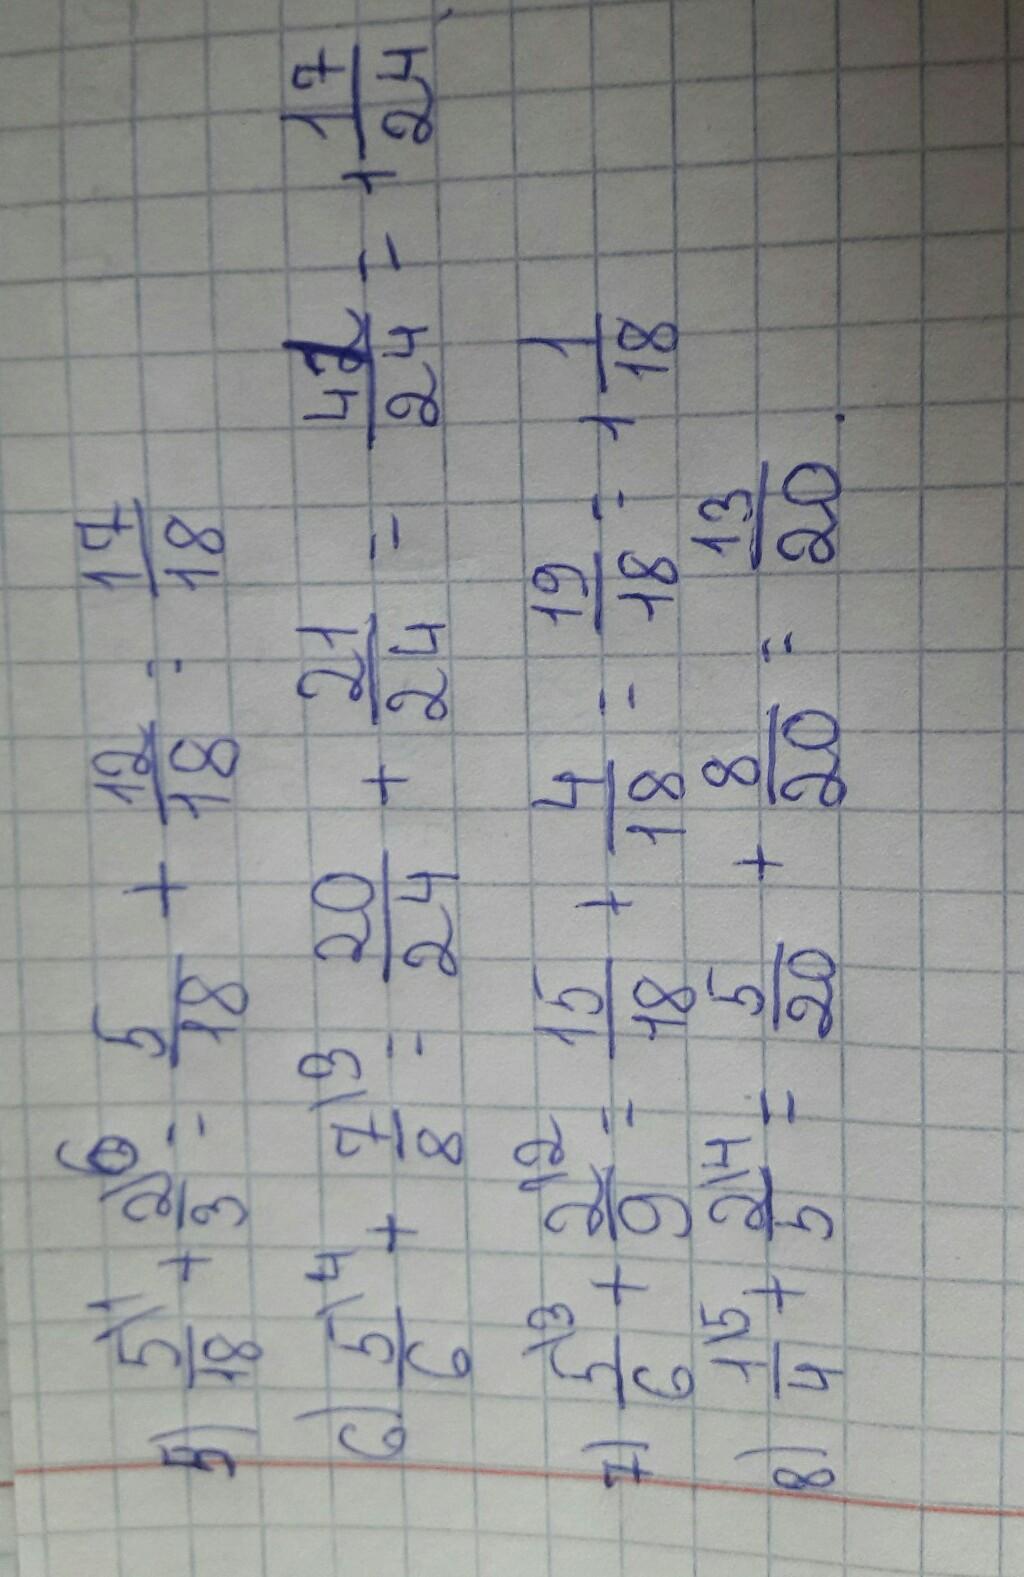 5) 5\1/18 + 2\6/3 = 5/18 + 12/18 = 17/18
6) 5\4/6 + 7\3/8 = 20/24 + 21/24 = 41/24 = 1 17/24
7) 5\3/6 + 2\2/9 = 15/18 + 4/18 = 19/18 = 1 1/18
8) 1\5/4 + 2\4/5 = 5/20 + 8/20 = 13/20.